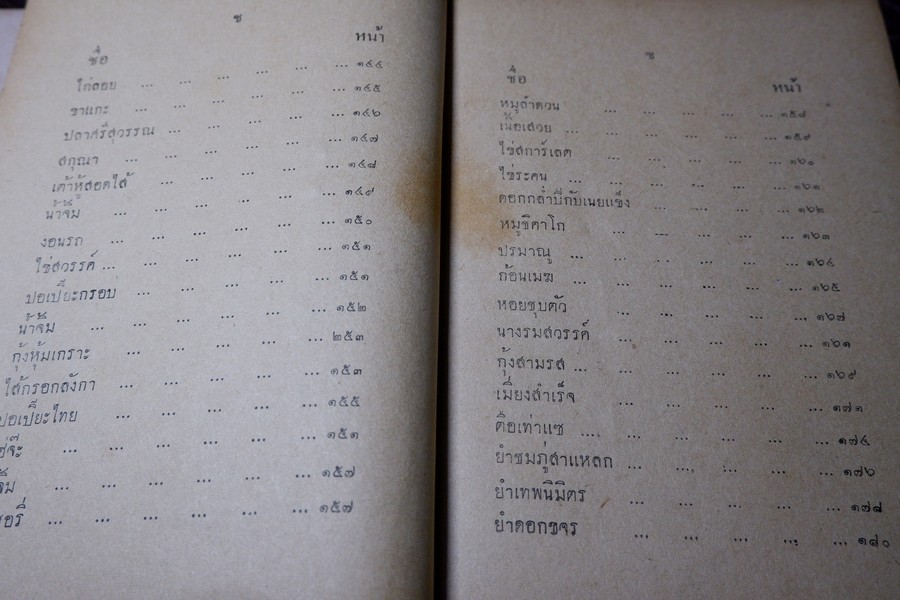 ช
หน้า
ชื่อ
ไก่ลอย ... ... ... ... ... ๑๔๔
ขาแกะ ... ... ... ... ... ๑๔๕
ปลาศรีสุวรรณ ... ... ... ... ๑๔๖
สกุณา ... ... ... ... ... ๑๔๗
เต้าหู้สอดไส้ ... ... ... ... ๑๔๘
น้ำจิ้ม ... ... ... ... ... ๑๔๙
งอนรถ ... ... ... ... ... ๑๕๐
ไข่สวรรค์ ... ... ... ... ... ๑๕๑
ปอเปี๊ยะกรอบ ... ... ... ... ... ๑๕๑
น้ำจิ้ม ... ... ... ... ... ๑๕๒
กุ้งหุ้มเกราะ ... ... ... ... ... ๒๕๓
ไส้กรอกลังกา ... ... ... ... ... ๑๕๓
ปอเปี๊ยะไทย ... ... ... ... ... ๑๕๕
... ... ... ... ... ... ๑๕๑
... ... ... ... ... ... ๑๕๗
... ... ... ... ... ... ๑๕๗
ซ
ชื่อ
หน้า
หมูลำดวน ... ... ... ... ๑๕๘
เนื้อเสวย ... ... ... ... ... ๑๕๙
ไข่สการ์เลต ... ... ... ... ๑๖๐
ไข่ระคน ... ... ... ... ... ๑๖๑
ดอกกล่ำปีกับเนยแข็ง ... ... ... ๑๖๒
หมูชิคาโก ... ... ... ... ๑๖๓
ปรมาณู ... ... ... ... ... ๑๖๔
ก้อนเมฆ ... ... ... ... ... ๑๖๕
หอยชุบตัว ... ... ... ... ๑๖๗
นางรมสวรรค์ ... ... ... ... ๑๖๑
กุ้งสามรส ... ... ... ... ... ๑๖๙
เมี่ยงสำเร็จ ... ... ... ... ๑๗๑
คือเท่าแซ ... ... ... ... ... ๑๗๔
ยำชมภู่สาแหลก ... ... ... ... ... ๑๗๖
ยำเทพนิมิตร ... ... ... ... ... ๑๗๘
ยำดอกขจร ... ... ... ... ... ๑๘๐